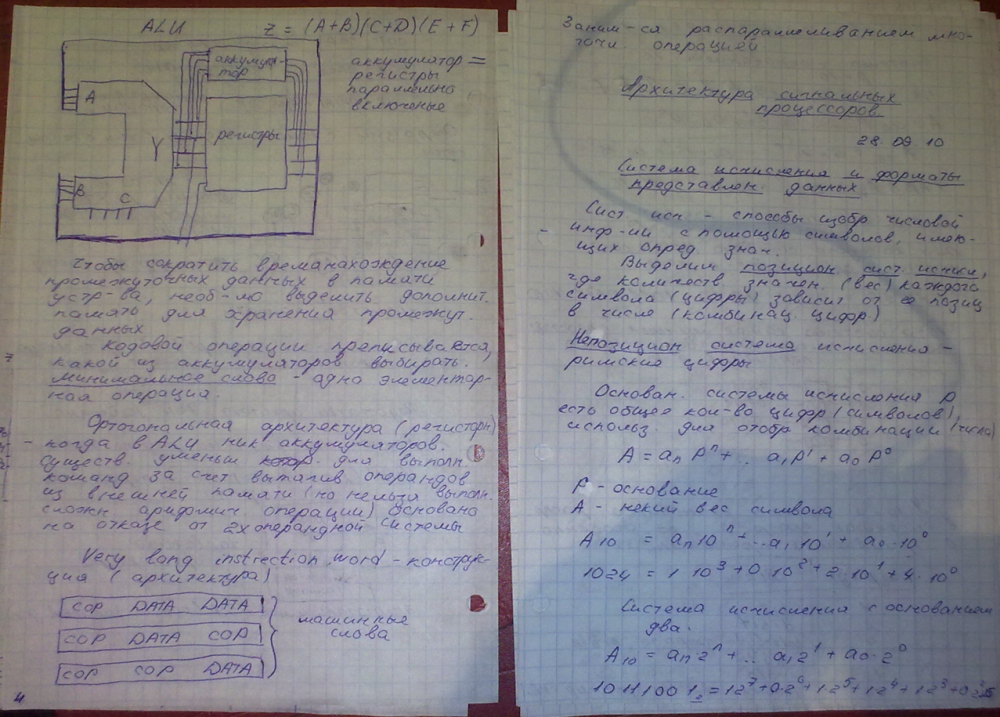 ALU z = (A+B)(C+D)(E+F)
аккумуля-
тор
аккумулятор =
регистры
параллельно
включеные
A
регистры
Y
B
C
Чтобы сократить время нахождение
промежуточных данных в памяти
устр-ва, необ-мо выделить дополнит.
память для хранения промежут.
данных
Кодовой операции преписывается,
какой из аккумуляторов выбирать.
Минимальное слово - одна элементар-
ная операция.
Ортогональная архитектура (регистры)
- когда в ALU ник аккумуляторов.
Существ. уменьш для выполн.
команд за счет вытагив операндов
из внешней памяти (но нельзя выполн.
сложн арифмич операции) Основано
на отказе от 2х операндной системы
Very long instrection word - конструк-
ция (архитектура)
COP DATA DATA
COP DATA COP
COP COP DATA
машинные
слова
4
Заним-ся распараллеливанием мно-
гочи. операцией
Архитектура сигнальных
процессоров
28 09 10
Система исчисления и форматы
представлен данных
Сист исч - способы изобр числовой
- инф-ии с помощью символов, имею-
щих опред знач.
Выделим позицион сист. исчисл,
где количеств значен (вес) каждого
символа (цифры) зависит от ее позиц
в числе (комбинац цифр)
Непозицион система исчисления -
римские цифры
Основан системы исчисления P
есть общее кол-во цифр (символов),
использ. для отобр комбинации (числа)
A = aₙ Pⁿ + .. a₁P¹ + a₀ P⁰
P - основание
A - некий вес символа
A₁₀ = aₙ10ⁿ + ..a₁ 10¹ + a₀·10⁰
1024 = 1·10³ + 0·10² + 2·10¹ + 4·10⁰
Система исчисления с основанием
два.
A₁₀ = aₙ·2ⁿ + .. a₁2¹ + a₀·2⁰
1011100 1₂ = 1·2⁷+0·2⁶+1·2⁵+1·2⁴+1·2³+0·2²